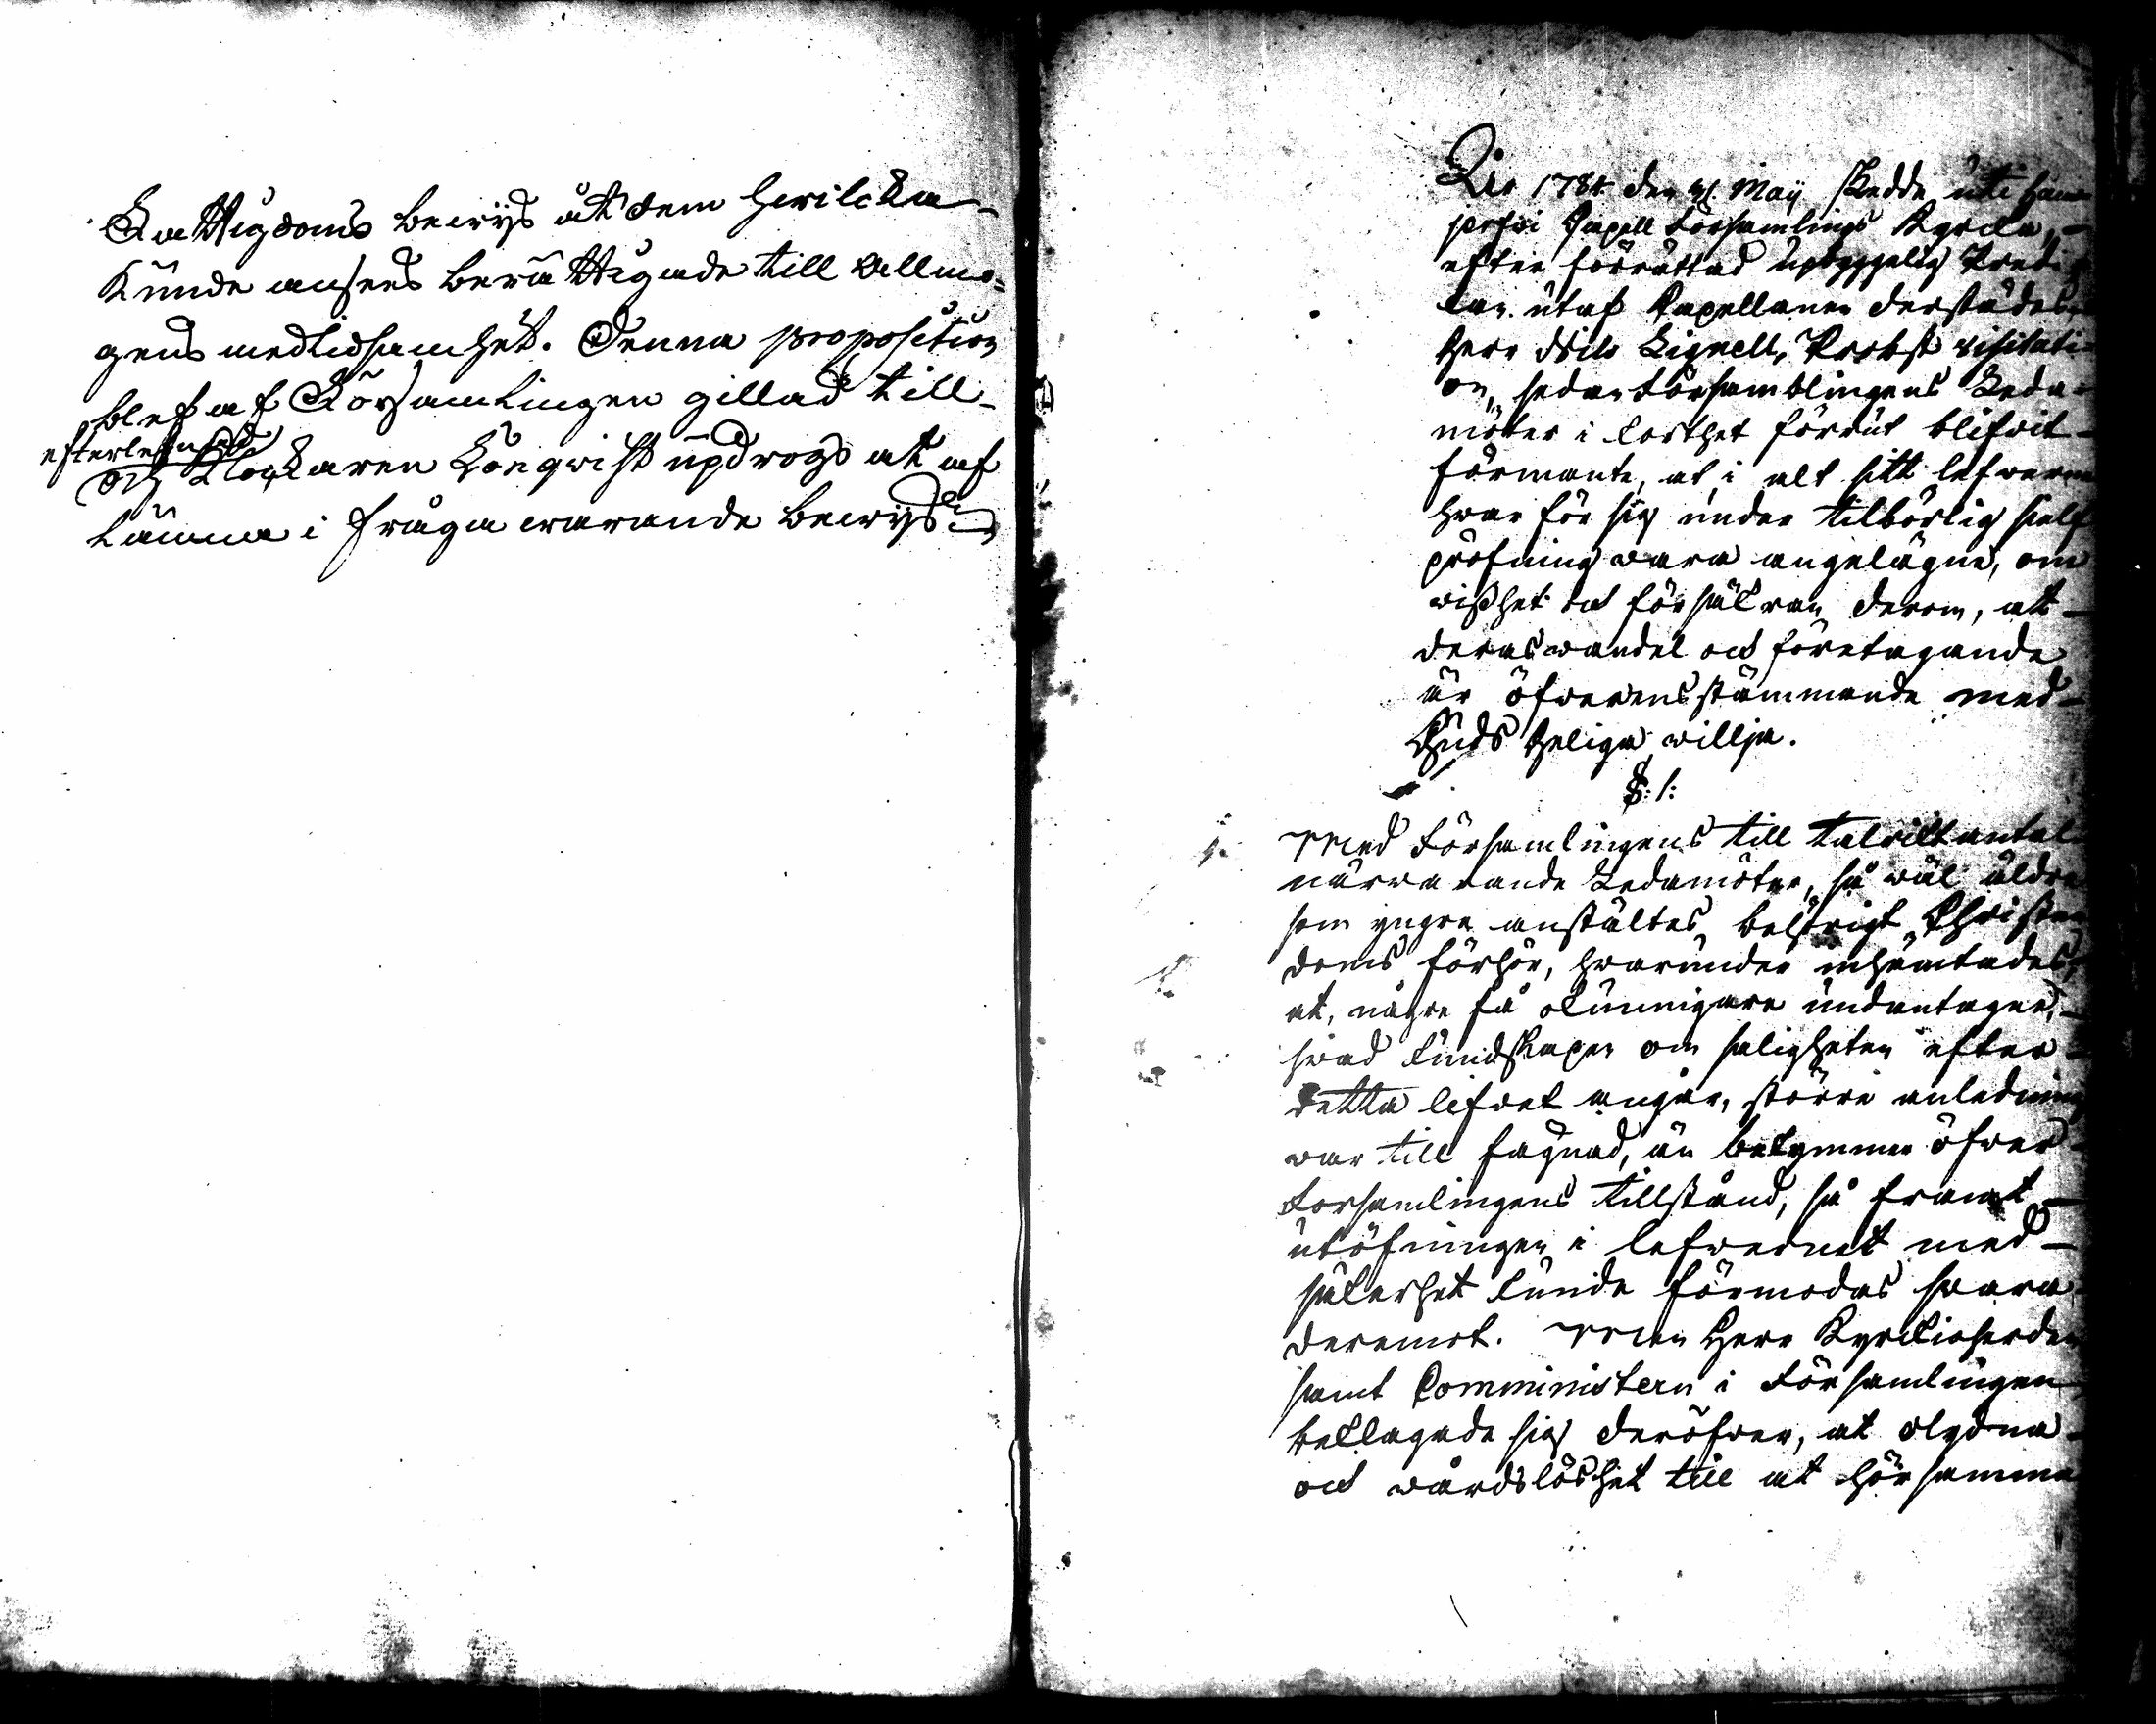 Fattigdoms bewijs åt dem hwilcka
kunde anses berättigade till allmo-
gens medlidsamhet. Denna proposition
blef af Församlingen gillad till
efterlefnad
och Klockaren Lönqwist updrogs at af
lämna i fråga warande bewijs.
År 1784 den Maij skedde uti Hau
jerfwi Capell Församlings Kyrcka,
efter förrättad upbyggelig Predi
kan utaf Capellanen derstädes
Herr Nils Lignell, Probst visitati-
on, sedan Församblingens Leda-
möter i korthet förrut blifwit
förmante, at i alt sitt lefwerne
hwar för sig under tilbörlig sielf
pröfning wara angelägne, om
wisshet och försäkran derom, att
deras wandel och företagande
är öfwerensstämmande med
Guds helige willja.
§: 1:
Med Församlingens till talrikt antal
närwarande Ledamöter, så wäl äldre
som yngre anstältes behörigt Christen
doms förhör, hwarunder inhämtades,
at, någre få okunnigare undantagne,
hwad kundskapen om saligheten efter
detta lifwet angår, större anledning
war till fägnad, än bekymmer öfwer
Församlingens tillstånd, så framt
utöfningen i lefwernet med
säkerhet kunde förmodas swara
deremot. Men Herr Kyrckioherden
samt Comministern i Församlingen
beklagade sig deröfwer, at olydna
och wårdslöshet till at hörsamma